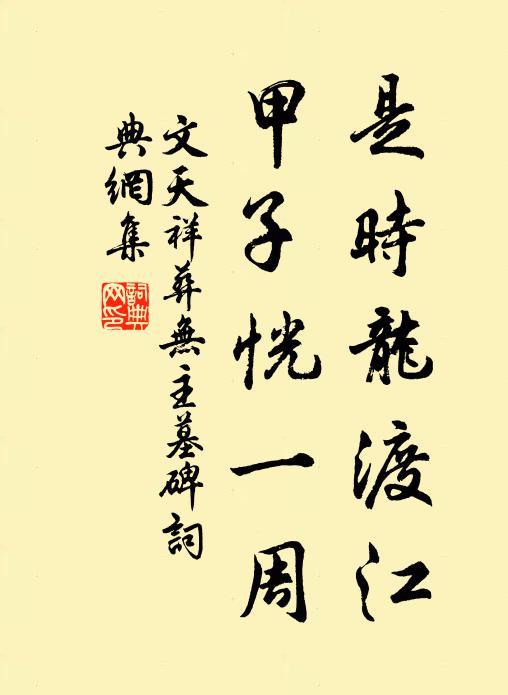 是時龍渡江
甲子恍一周
文天祥葬無主墓碑詞
典網集
詞典网印